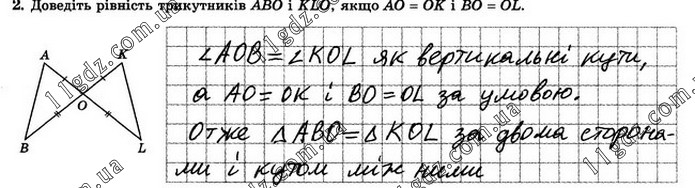 2. Доведіть рівність трикутників ABO і KLO, якщо AO = OK і BO = OL.
A
K
O
B
L
∠AOB = ∠KOL як вертикальні кути,
а AO = OK і BO = OL за умовою.
Отже △ABO = △KOL за двома сторона-
ми і кутом між ними
11gdz.com.ua